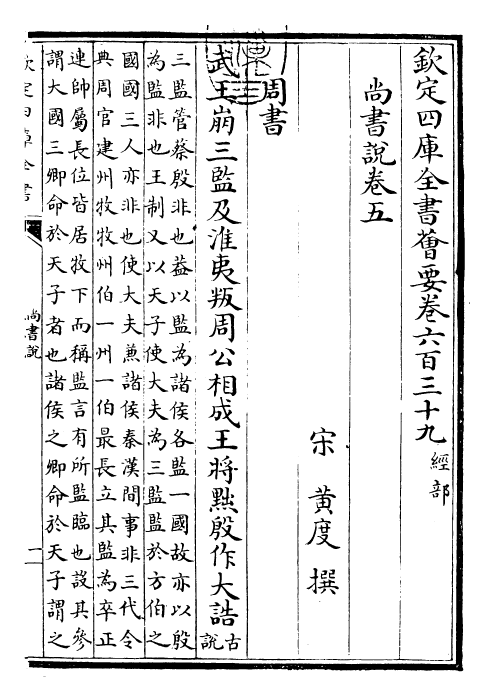 欽定四庫全書薈要卷六百三十九 經部
尚書說卷五
宋 黃度 撰
周書
武王崩三監及淮夷叛周公相成王將黜殷作大誥 古說
三監管蔡殷非也葢以監為諸侯各監一國故亦以殷
為監非也王制又以天子使大夫為三監監於方伯之
國國三人亦非也使大夫兼諸侯秦漢間事非三代令
典周官建州牧牧州伯一州一伯最長立其監為卒正
連帥屬長位皆居牧下而稱監言有所監臨也設其參
謂大國三卿命於天子者也諸侯之卿命於天子謂之
欽定四庫全書
尚書說
一